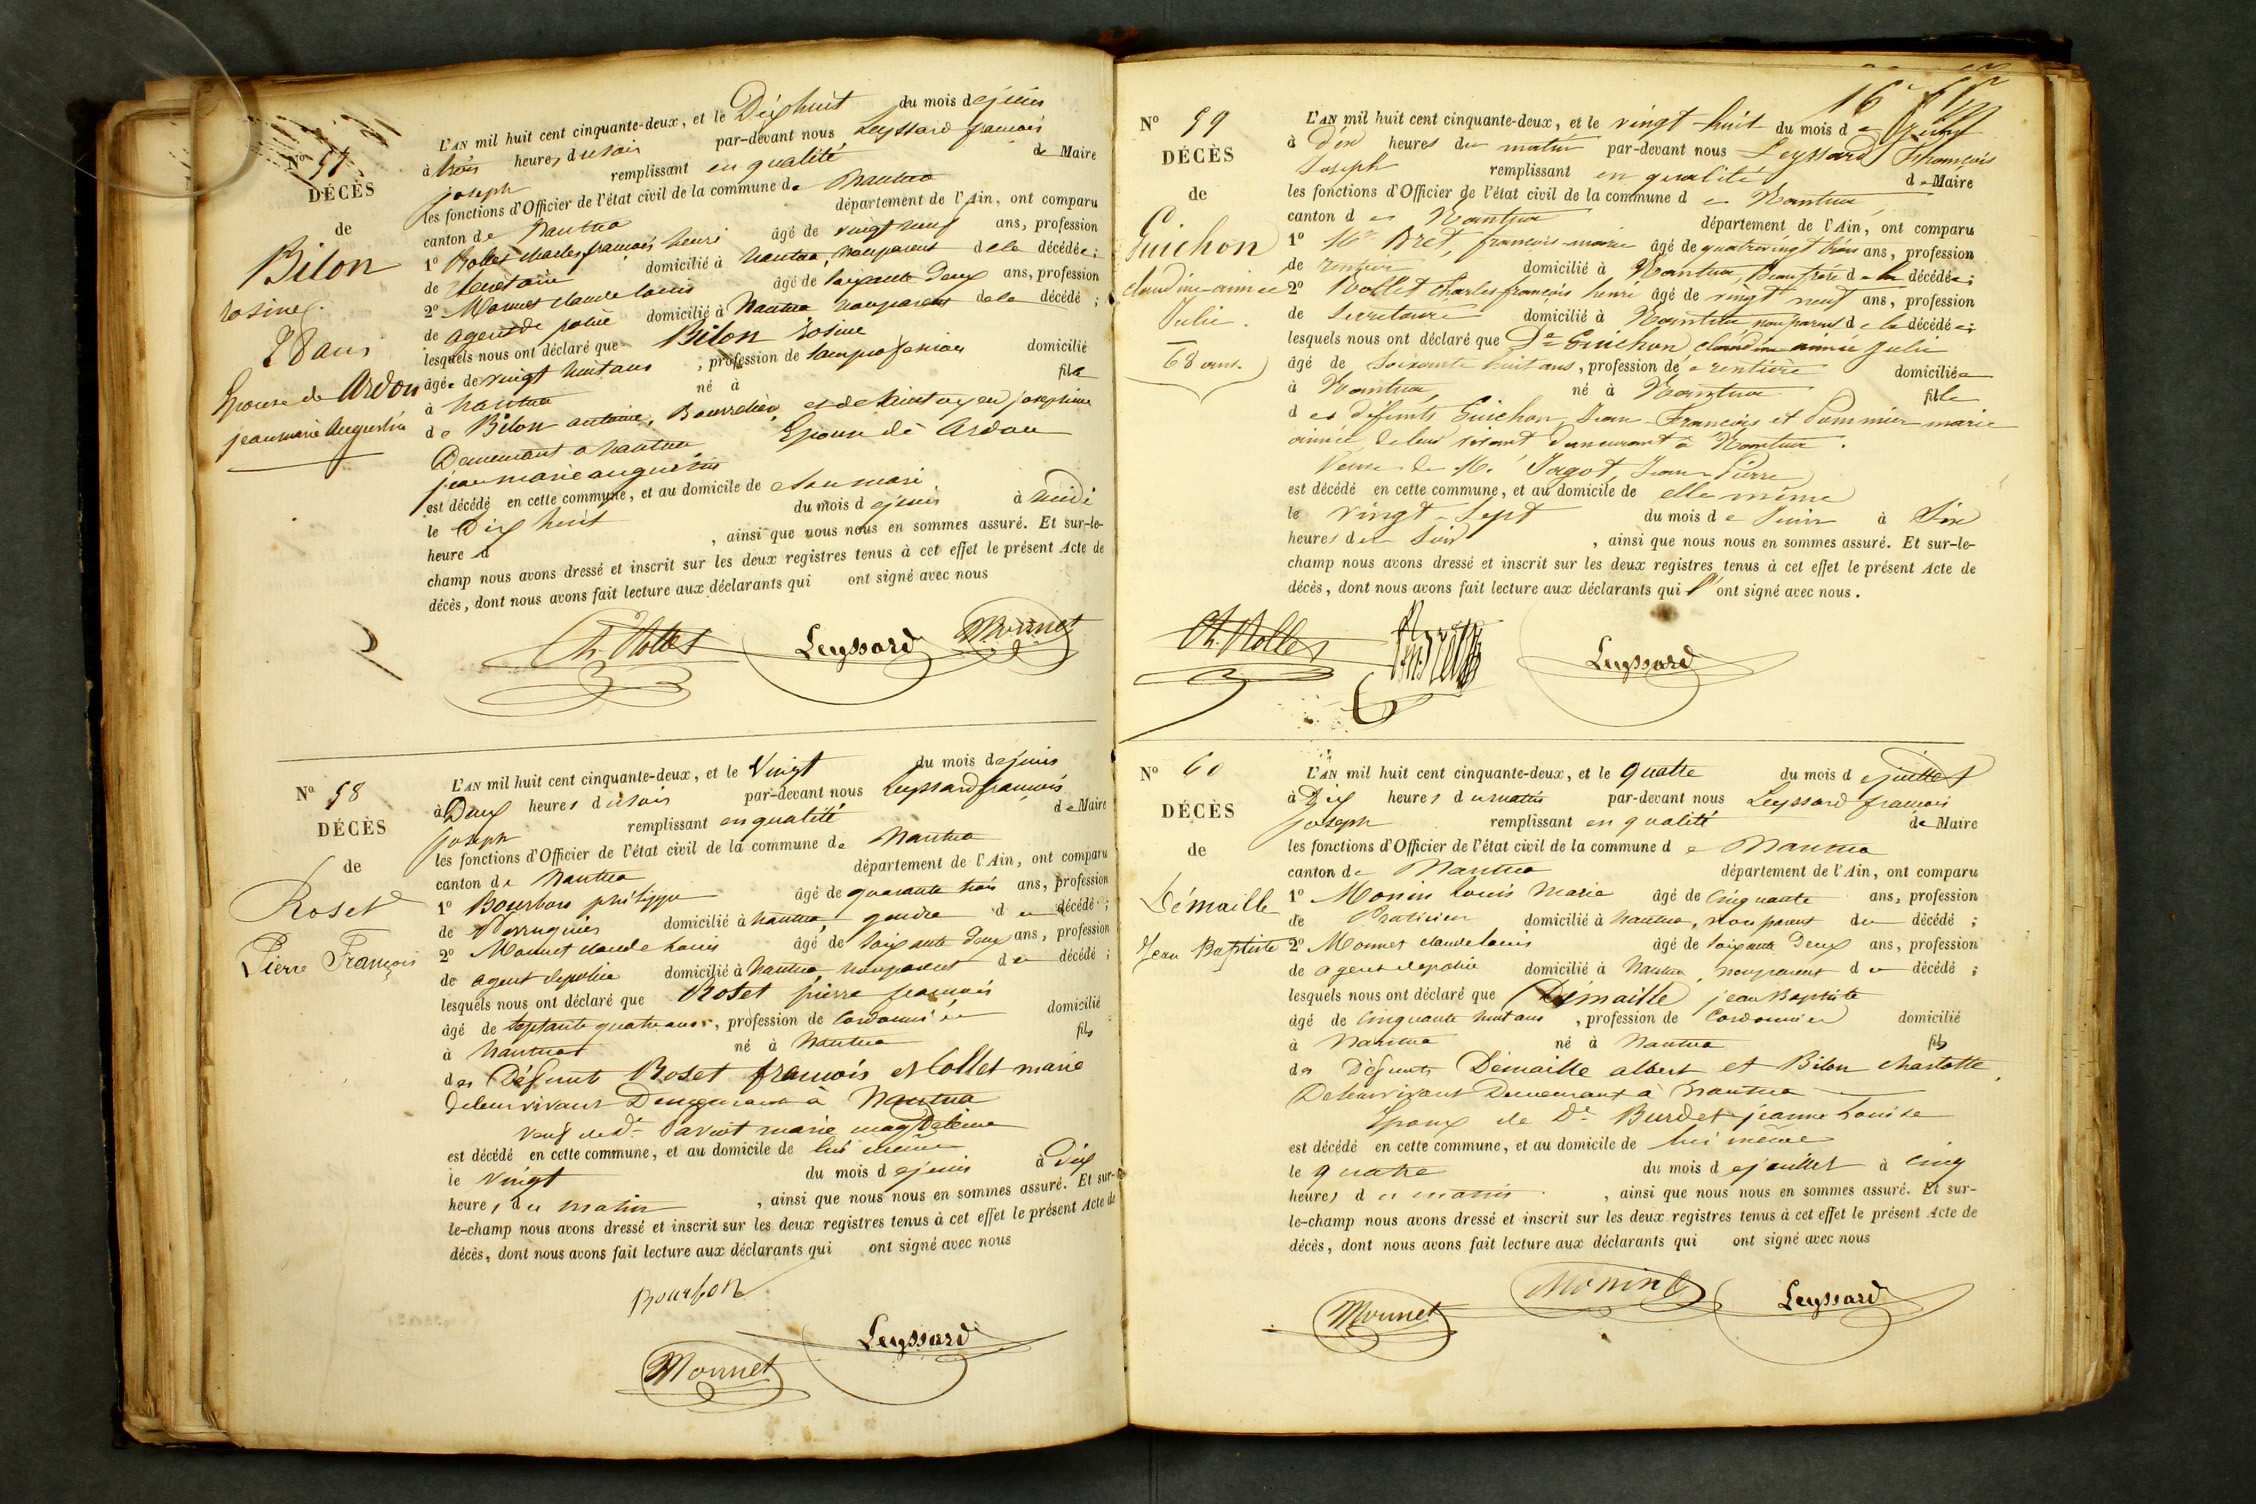 N° 57
DÉCÈS
de
Bilon
rosine.
28 ans
Epouse de Ardon
jean marie Augustin
L'AN mil huit cent cinquante-deux, et le Dix huit du mois de juin
à trois heures du soir par-devant nous Leyssard françois
joseph remplissant en qualité de Maire
les fonctions d'Officier de l'état civil de la commune de Nantua
canton de Nantua département de l'Ain, ont comparu
1° Rollet charles françois henri âgé de vingt neuf ans, profession
de secrétaire domicilié à Nantua, non parent de la décédée;
2° Monnet claude louis âgé de soixante deux ans, profession
de agent de police domicilié à Nantua non parent de la décédé;
lesquels nous ont déclaré que Bilon rosine
âgée de vingt huit ans, profession de sans profession domicilié
à Nantua né à fille
de Bilon antoine, Bourrelier, et de josephine
Demeurant à Nantua Epouse de Ardon
jean marie augustin
est décédé en cette commune, et au domicile de son mari
le Dix huit du mois de juin à midi
heure d , ainsi que nous nous en sommes assuré. Et sur-le-
champ nous avons dressé et inscrit sur les deux registres tenus à cet effet le présent Acte de
décès, dont nous avons fait lecture aux déclarants qui ont signé avec nous
Ch. Rollet Leyssard Monnet
N° 58
DÉCÈS
de
Roset
Pierre François
L'AN mil huit cent cinquante-deux, et le Vingt du mois de juin
à Deux heures du soir par-devant nous Leyssard françois
joseph remplissant en qualité de Maire
les fonctions d'Officier de l'état civil de la commune de Nantua
canton de Nantua département de l'Ain, ont comparu
1° Bourbon philippe âgé de quarante trois ans, profession
de Perruquier domicilié à Nantua, gendre du décédé;
2° Monnet claude louis âgé de soixante deux ans, profession
de agent de police domicilié à Nantua, non parent du décédé;
lesquels nous ont déclaré que Roset pierre françois
âgé de septante quatre ans, profession de Cordonnier domicilié
à Nantua né à Nantua fils
des Défunts Roset françois et Collet marie
de leur vivant Demeurant à Nantua
veuf de De marie magdeleine
est décédé en cette commune, et au domicile de lui même
le vingt du mois de juin à Dix
heures du matin, ainsi que nous nous en sommes assuré. Et sur-
le-champ nous avons dressé et inscrit sur les deux registres tenus à cet effet le présent Acte de
décès, dont nous avons fait lecture aux déclarants qui ont signé avec nous
Bourbon
Leyssard
Monnet
16
N° 59
DÉCÈS
de
Guichon
claudine aimée
Julie.
68 ans.
L'AN mil huit cent cinquante-deux, et le vingt-huit du mois de juin
à dix heures du matin par-devant nous Leyssard François
Joseph remplissant en qualité de Maire
les fonctions d'Officier de l'état civil de la commune de Nantua
canton de Nantua département de l'Ain, ont comparu
1° Mr Bret, françois-marie âgé de quatrevingt trois ans, profession
de rentier domicilié à Nantua, Beau frère de la décédée;
2° Rollet charles françois henri âgé de vingt neuf ans, profession
de Secrétaire domicilié à Nantua non parent de la décédée;
lesquels nous ont déclaré que De Guichon claudine aimée julie
âgé de soixante huit ans, profession de rentière domiciliée
à Nantua, né à Nantua fille
des deffunts Guichon, Jean-François et Pommier marie
aimée de leur vivant demeurant à Nantua.
Veuve de Mr Jagot, Jean Pierre
est décédé en cette commune, et au domicile de elle même
le vingt-sept du mois de Juin à Six
heures du Soir, ainsi que nous nous en sommes assuré. Et sur-le-
champ nous avons dressé et inscrit sur les deux registres tenus à cet effet le présent Acte de
décès, dont nous avons fait lecture aux déclarants qui l'ont signé avec nous.
Ch. Rollet Bret Leyssard
N° 60
DÉCÈS
de
Démaille
Jean Baptiste
L'AN mil huit cent cinquante-deux, et le quatre du mois de juillet
à Dix heures du matin par-devant nous Leyssard françois
joseph remplissant en qualité de Maire
les fonctions d'Officier de l'état civil de la commune de Nantua
canton de Nantua département de l'Ain, ont comparu
1° Monin Louis Marie âgé de Cinquante ans, profession
de Praticien domicilié à Nantua, non parent du décédé;
2° Monnet claude louis âgé de soixante Deux ans, profession
de agent de police domicilié à Nantua, non parent du décédé;
lesquels nous ont déclaré que Démaille jean Baptiste
âgé de Cinquante huit ans, profession de Cordonnier domicilié
à Nantua né à Nantua fils
des Défunts Démaille albert et Bilon charlotte
De leur vivant Demeurant à Nantua
Epoux de De Burdet jeanne Louise
est décédé en cette commune, et au domicile de lui même
le quatre du mois de juillet à cinq
heures du matin, ainsi que nous nous en sommes assuré. Et sur-
le-champ nous avons dressé et inscrit sur les deux registres tenus à cet effet le présent Acte de
décès, dont nous avons fait lecture aux déclarants qui ont signé avec nous
Monnet Monin Leyssard